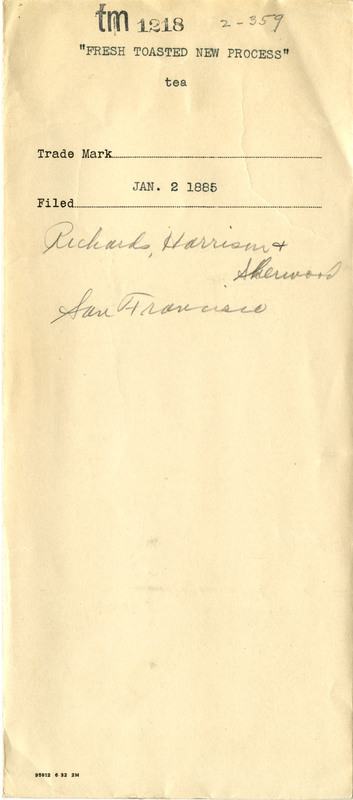 tm 1218 2-359
"FRESH TOASTED NEW PROCESS"
tea
Trade Mark
JAN. 2 1885
Filed
Richards, Harrison +
Sherwood
San Francisco
95912 6 32 2M